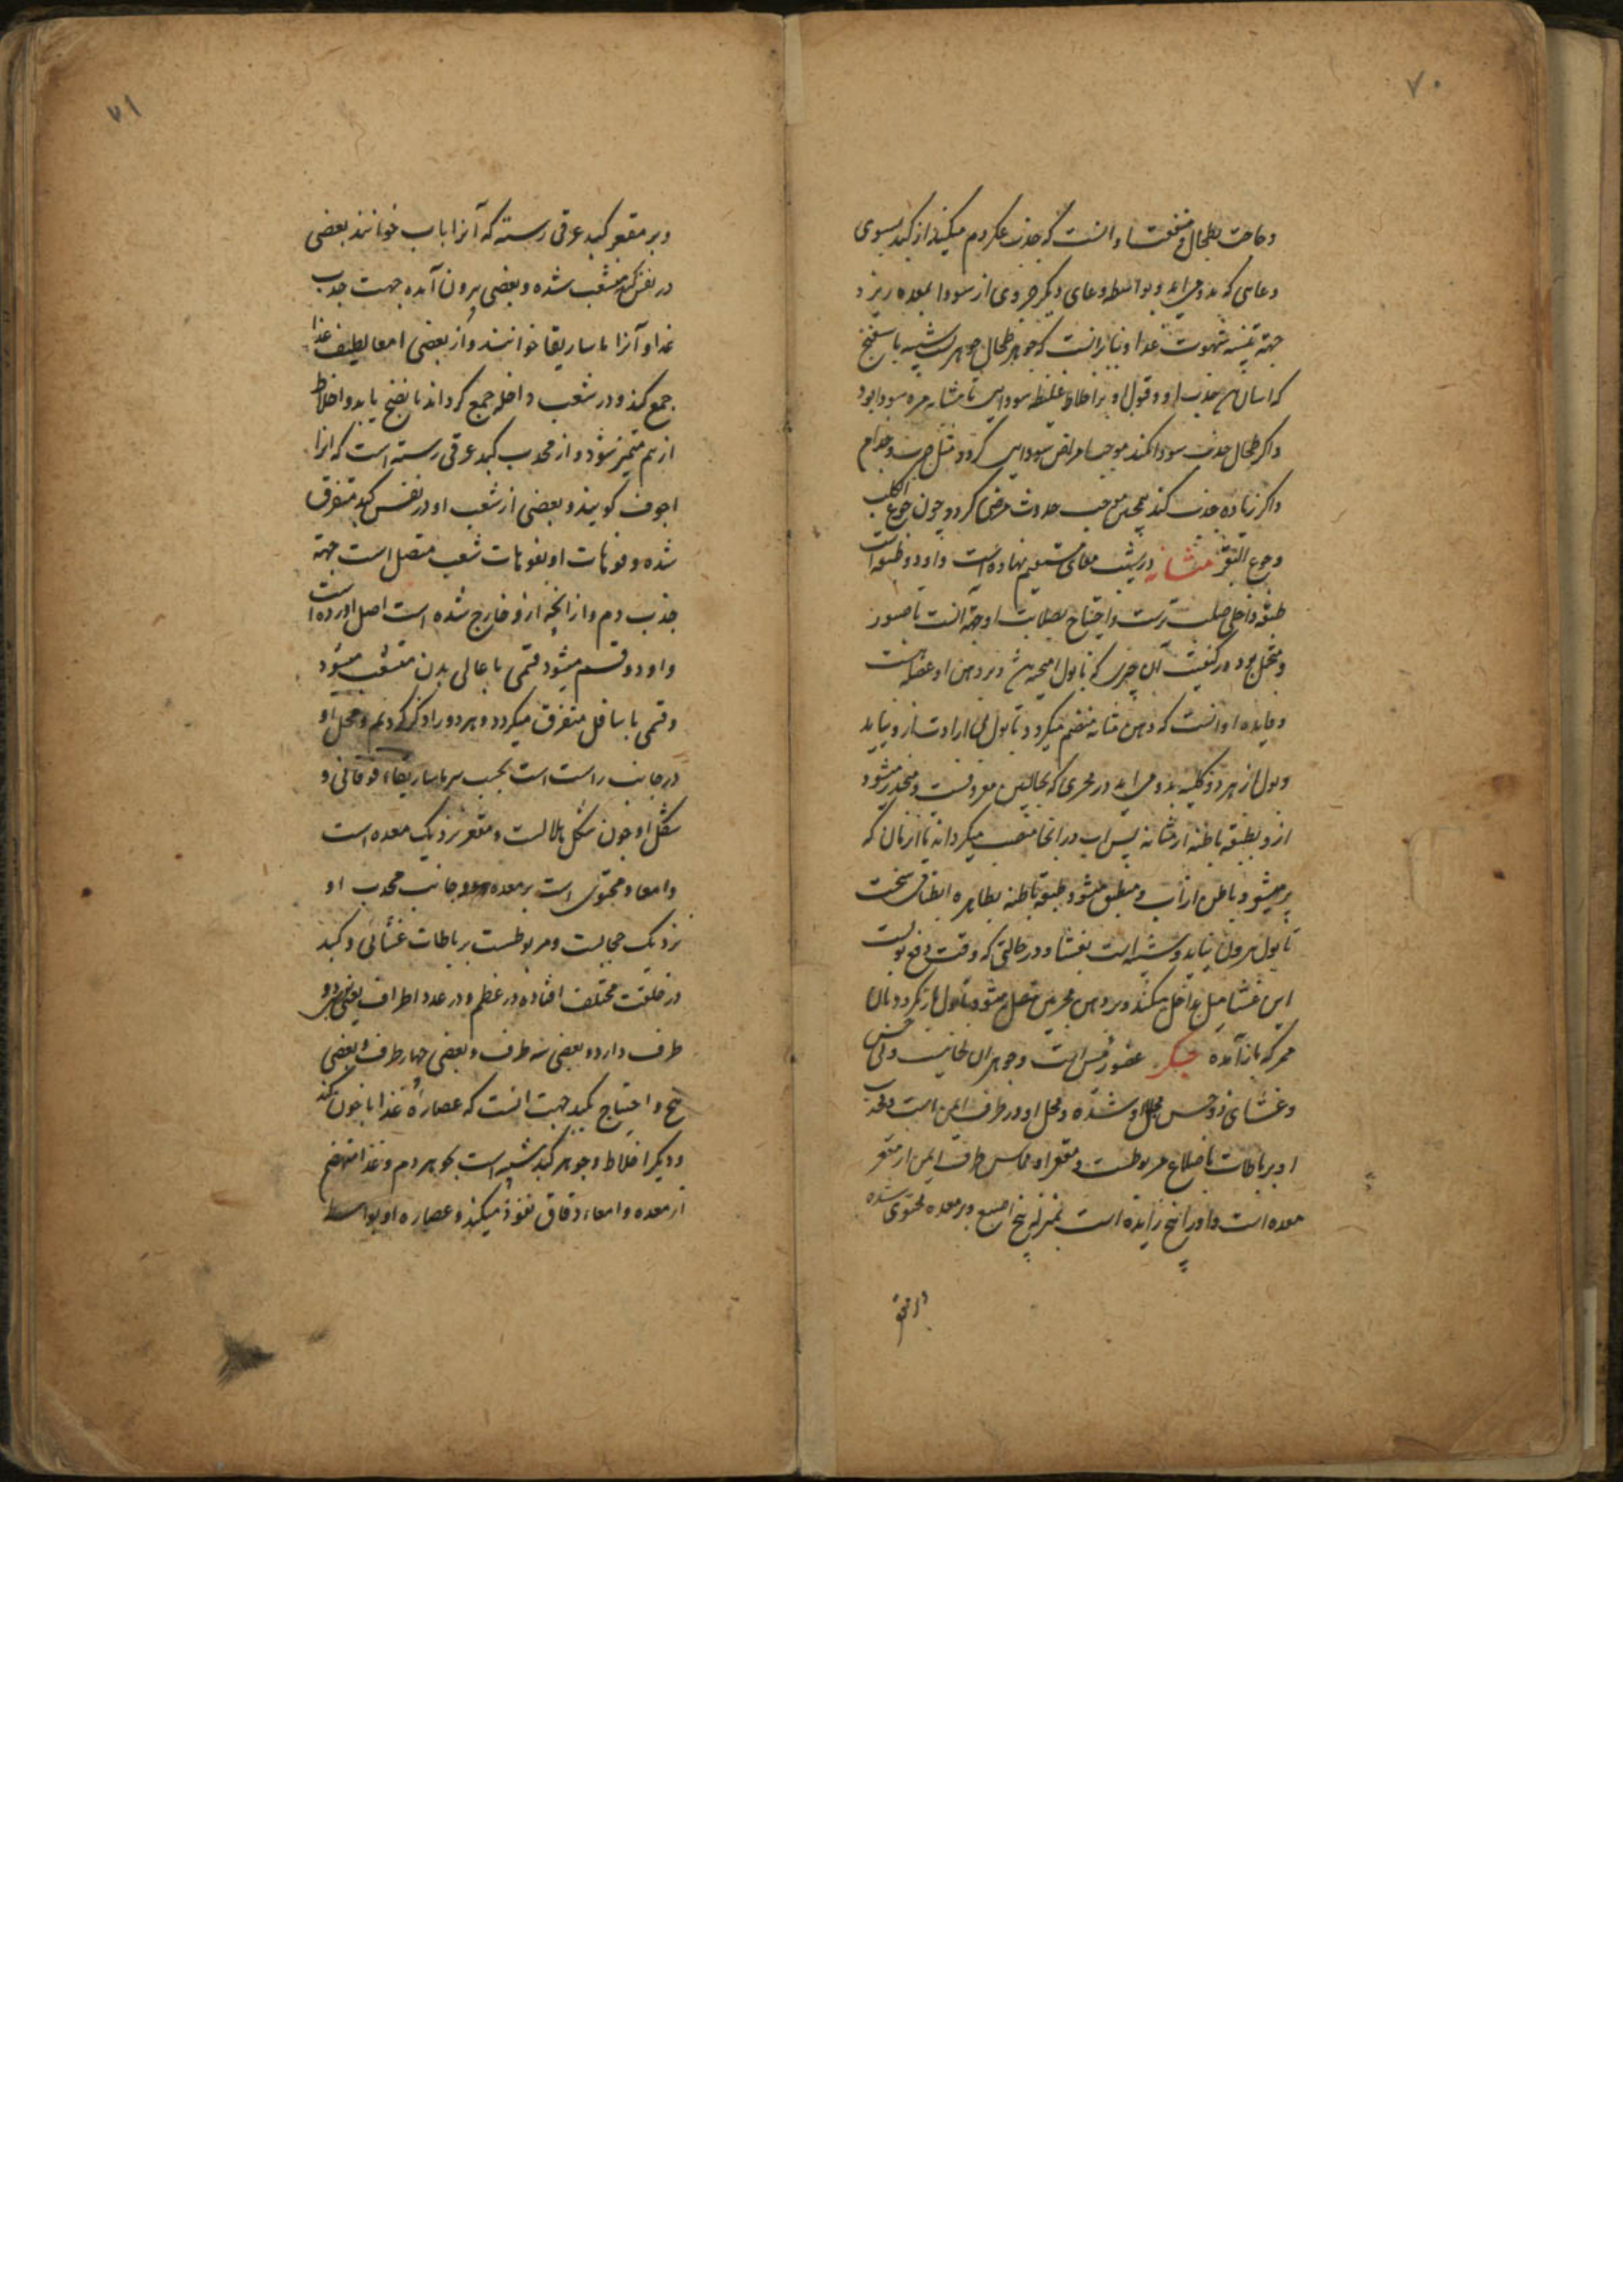 ۷۰
و حاجت بطحال و منفعت او انست که جذب عکر دم میکند از کبد بسوی
وعایی که بدو می اید و بواسطه وعای دیگر جزوی از سودا بمعده ریزد
جهة شهوت غذا و بنا برانست که جوهر طحال جوهریست شبیه باسفنج
که اسان جذب او و قبول او بر اخلاط غلیظه سوداوی تا مشابه مره سودا بود
و اکر طحال جذب سودا نکند موجب امراض سوداوی کردد مثل جرب و جذام
و اکر زیاده جذب کند همچنین موجب حدوث مرضی کردد چون جوع الکلب
و جوع البقر مثانه در پشت معای مستقیم نهاده است و او دو طبقه است
طبقه داخلی صلب ترست و احتیاج بصلابت او جهة انست تا صبور
و متحمل بود در کیفیت آن چیزی که با بول امیخته شد و بر دهن او عضله است
و فایده او انست که دهن مثانه منضم میکردد تا بول بی ارادت ازو نیاید
و بول از هر دو کلیه بدو می اید در مجری که بحالبین معروفست و منحدر میشود
ازو بطبقه باطنه از مثانه پس اب در انجا منصب میکرداند تا ان زمان که
پر میشود باطن از آب و منطبق میشود طبقه باطنه بظاهره انطباقی سخت
تا بول بیرون نیاید و شبیه است بغشا و در حالتی که وقت دفع بولست
این غشا میل بداخل میکند و بر دهن مجری متصل میشود تا بول باز نکردد بان
ممر که باز آمده جکر عضو رئیس است و جوهر ان لحمانیست و بی حس
و غشای ذو حس مجلل او شده و محل او در طرف ایمن است و محدب
او برباطات باضلاع مربوطست و مقعر او مماس طرف ایمن از مقعر
معده است و او را پنج زایده است بمنزله پنج اصبع و بر معده محتوی شده
۷۱
و بر مقعر کبد عرقی رسته که آنرا باب خوانند بعضی
در نفس کبد متشعب شده و بعضی بیرون آمده جهت جذب
غذا و آنرا ماساریقا خوانند و از بعضی امعا لطیف غذا
جمع کند و در شعب داخله جمع کرداند تا نضج یابد و اخلاط
از هم متمیز شود و از محدب کبد عرقی رسته است که انرا
اجوف کویند و بعضی از شعب او در نفس کبد متفرق
شده و فوهات او بفوهات شعب متصل است جهة
جذب دم و از انچه ازو خارج شده است اصل اورده است
و او دو قسم میشود قسمی باعالی بدن متشعب میشود
و قسمی باسافل متفرق میکردد و هر دو را ذکر کردیم و محل او
در جانب راست است بجنب سر ماساریقاء فوقانی و
شکل او چون شکل هلالست و مقعر نزدیک معده است
و امعا و محتوی است بر معده و جانب محدب او
نزدیک حجابست و مربوطست برباطات غشائی و کبد
در خلقت مختلف افتاده در عظم و در عدد اطراف یعنی بعضی دو
طرف دارد و بعضی سه طرف و بعضی چهار طرف و بعضی
پنج و احتیاج بکبد جهت انست که عصاره غذا با خون کند
و دیگر اخلاط و جوهر کبد شبیه است بجوهر دم و غذا منهضم
از معده و امعاء دقاق نفوذ میکند و عصاره او بواسطه